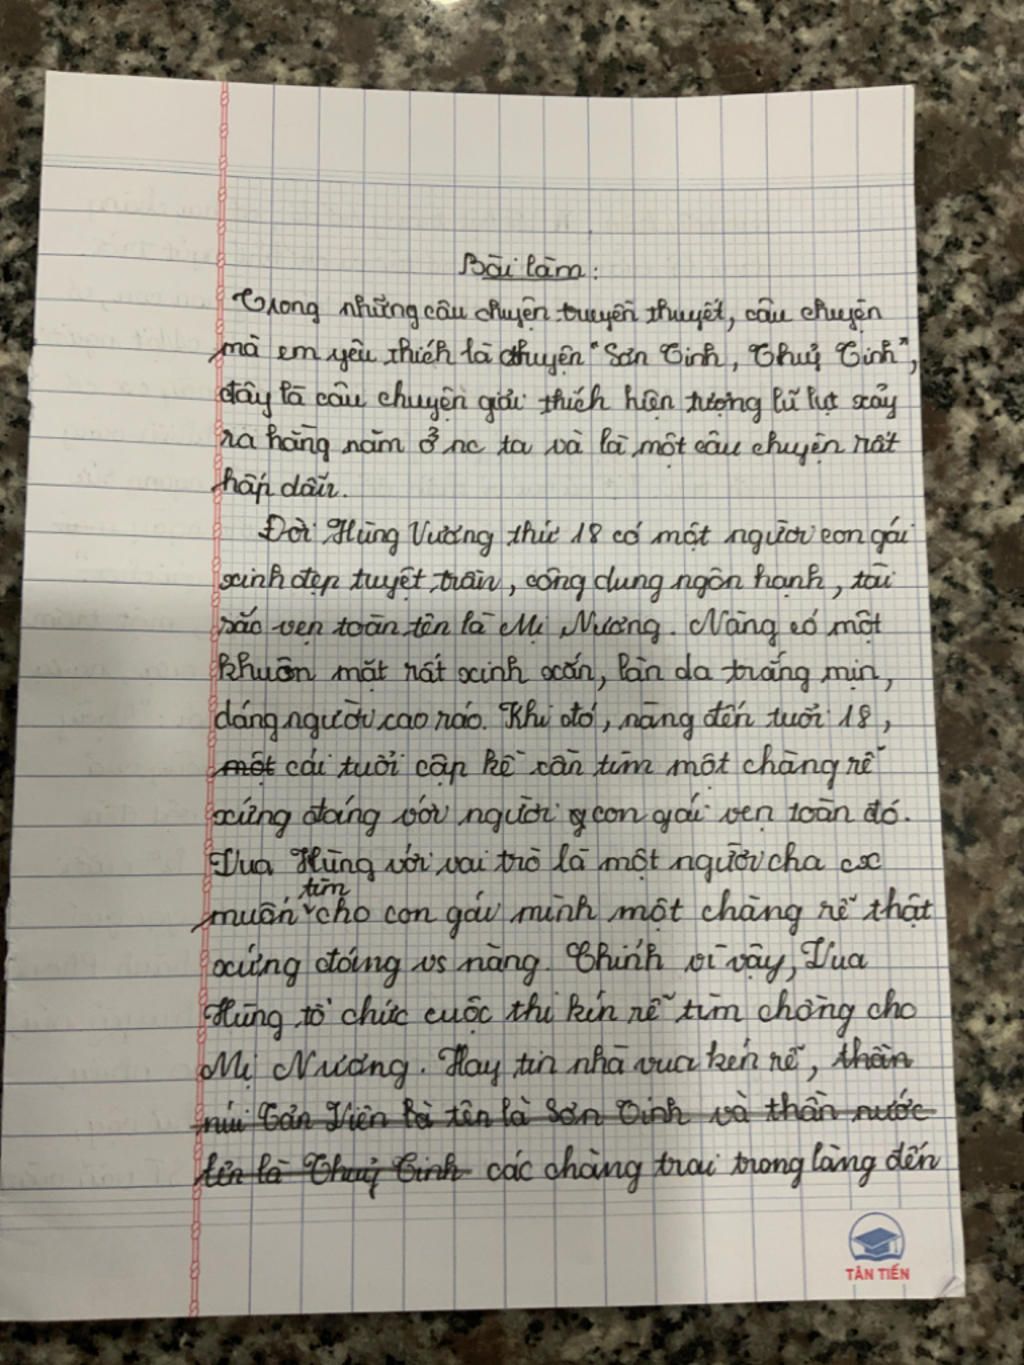 Bài làm:
Trong những câu chuyện truyền thuyết, câu chuyện
mà em yêu thích là chuyện "Sơn Tinh, Thuỷ Tinh",
đây là câu chuyện giải thích hiện tượng lũ lụt xảy
ra hằng năm ở nc ta và là một câu chuyện rất
hấp dẫn.
Đời Hùng Vương thứ 18 có một người con gái
xinh đẹp tuyệt trần, công dung ngôn hạnh, tài
sắc vẹn toàn tên là Mị Nương. Nàng có một
khuôn mặt rất xinh xắn, làn da trắng mịn,
dáng người cao ráo. Khi đó, nàng đến tuổi 18,
một cái tuổi cập kê cần tìm một chàng rể
xứng đáng với người con gái vẹn toàn đó.
Vua Hùng với vai trò là một người cha cx
muốn tìm cho con gái mình một chàng rể thật
xứng đáng vs nàng. Chính vì vậy, Vua
Hùng tổ chức cuộc thi kén rể tìm chồng cho
Mị Nương. Hay tin nhà vua kén rể, thần
núi Tản Viên là tên là Sơn Tinh và thần nước
tên là Thuỷ Tinh các chàng trai trong làng đến
TÂN TIẾN